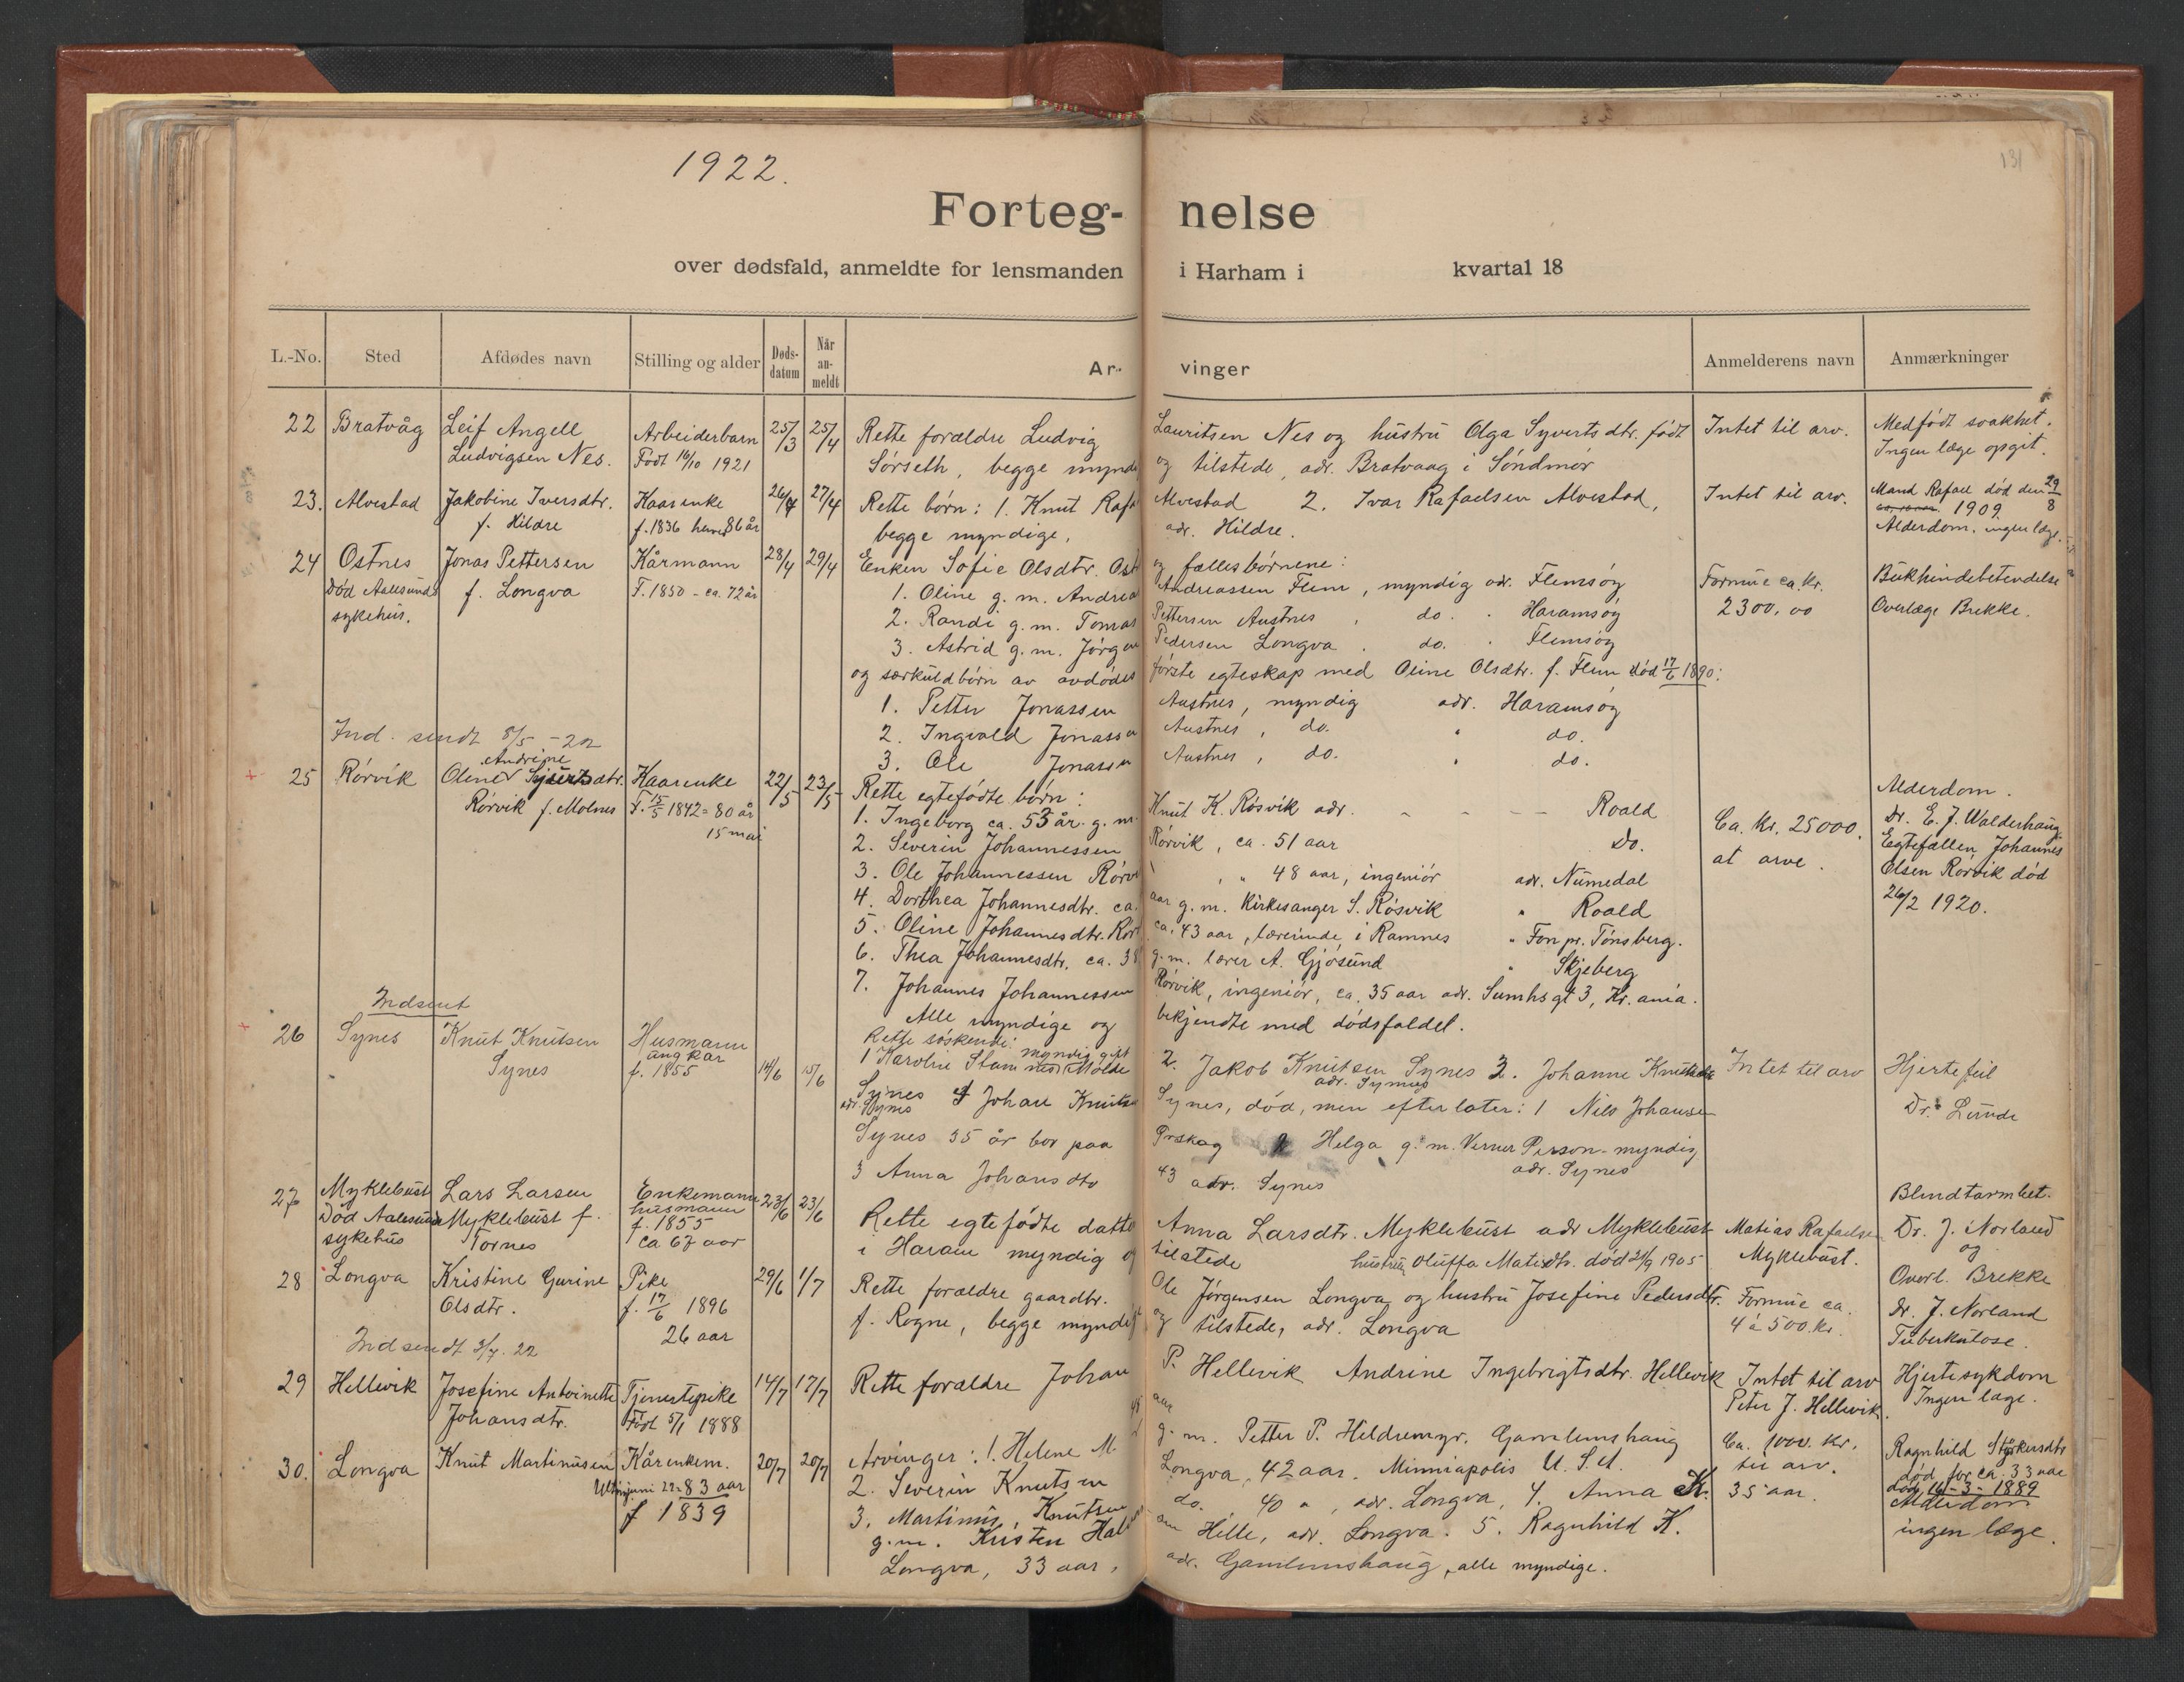 1922.
131
Forteg- nelse
over dødsfald, anmeldte for lensmanden i Harham i kvartal 18
L.-No. Sted Afdødes navn Stilling og alder Døds-datum Når an-meldt Ar- vinger Anmelderens navn Anmærkninger
22 Bratvåg Leif Angell Arbeiderbarn 25/3 25/4 Rette forældre Ludvig Lauritsen Nes og hustru Olga Syvertsdtr. født Intet til arv. Medfødt svakhet.
Ludvigsen Nes. Født 16/10 1921 Sørseth, begge mynd og tilstede, adr. Bratvaag i Søndmør Ingen læge opgit.
23. Alvestad Jakobine Iversdtr. Kaarenke 26/4 27/4 Rette børn: 1. Knut Raf Alvestad 2. Ivar Rafaelsen Alvestad, Intet til arv. Mand Rafael død den 29/8
f. Hildre f. 1836 henved 86 år begge myndige, adr. Hildre. 1909.
Alderdom. ingen læge.
24 Ostnes Jonas Pettersen Kårmann 28/4 29/4 Enken Sofie Olsdtr. Ost og fællesbørnene: Formue ca. kr. Bukhindebetendelse
Død Aalesunds f. Longva F. 1850 - ca. 72 år 1. Oline g. m. Andrea Andreassen Flem, myndig adr. Flemsøy 2300,00 Overlæge Brekke.
sykehus. 2. Randi g. m. Tomas Pettersen Austnes , do. " Haramsøy
3. Astrid g. m. Jørgen Pedersen Longva . do. " Flemsøy
og særkuldbørn av avdødes første egteskap med Oline Olsdtr. f. Flem død 17/6 1890:
1. Petter Jonassen Austnes, myndig adr. Haramsøy
Ind. sendt 8/5 - 22 2. Ingvald Jonassen Austnes, do. " do.
3. Ole Jonassen Austnes, do. " do.
Andrine
25 Rørvik Oline Sjurtsdtr. Kaarenke 22/5 23/5 Rette egtefødte børn: Alderdom.
Rørvik f. Molnes F. 15/5 1842 = 80 år 1. Ingeborg ca. 53 år g. m. Knut K. Røsvik adr. - - - Roald Ca. kr. 25000. Dr. E. J. Walderhaug.
15 mai 2. Severin Johannessen Rørvik, ca. 51 aar Do. at arve. Egtefællen Johannes
3. Ole Johannessen Rørv " , " 48 aar, ingeniør adr. Numedal Olsen Rørvik død
4. Dorthea Johannesdtr. ca. aar g. m. Kirkesanger S. Røsvik " Roald 26/2 1920.
5. Oline Johannesdtr. Rør ca. 43 aar, lærerinde i Ramnes " Fon pr. Tønsberg.
6. Thea Johannesdtr. ca. 38 g. m. lærer A. Gjøsund " Skjeberg
7. Johannes Johannessen Rørvik, ingeniør, ca. 35 aar adr. Sumhsgt 3, Kr.ania.
Indsent Alle myndige og bekjendte med dødsfaldet.
26 Synes Knut Knutsen Husmann Rette søskende:
Synes ungkar 14/6 15/6 1 Karolin Stam myndig gift Molde 2. Jakob Knutsen Synes 3. Johanne Knutsdtr Intet til arv Hjertefeil
f. 1855 adr. Synes
Synes 4 Johan Knutsen Synes, død, men efterlater: 1 Nils Johansen Dr. Lunde
adr. Synes
Synes 55 år bor paa Ørskog 2 Helga g. m. Verner Person - myndig
adr. Synes
3 Anna Johansdtr 43 adr. Synes
27 Myklebust Lars Larsen Enkemann 23/6 23/6 Blindtarmbet.
Død Aalesunds Myklebust f. husmann Rette egtefødte datter Anna Larsdtr. Myklebust adr Myklebust Matias Rafaelsen Dr. J. Norland
sykehus Tornes f. 1855 i Haram myndig og tilstede hustru Oluffa Matisdtr. død 21/9 1905 Myklebust. og
ca 67 aar Overl. Brekke
28 Longva Kristine Gurine Pike 29/6 1/7 Rette forældre gaardbr. Ole Jørgensen Longva og hustru Josefine Pedersdtr. Formue ca. dr. J. Norland
Olsdtr. f. 17/6 1896 f. Rogne, begge myndig og tilstede, adr. Longva 4 à 500 kr. Tuberkulose.
Indsendt 3/7. 22 26 aar
29 Hellevik Josefine Antoinette Tjenestepike 14/7 17/7 Rette forældre Johan P. Hellevik Andrine Ingebrigtsdtr. Hellevik Intet til arv Hjertesykdom
Johansdtr. Født 5/1 1888 Peter J. Hellevik. Ingen læge.
48 aar
30. Longva Knut Martinusen Kårenkem. 20/7 20/7 Arvinger: 1. Helene M. g. m. Petter P. Hildremyr. Gamlemshaug Ca. 1000. kr. Ragnhild Styrkersdtr
juni 22 = 83 aar 2. Severin Knutsen Longva, 42 aar. Minniapolis U. S. A. til arv. død for ca. 33 aar
f 1839 3. Martinus, Knutsen do. 40 " , adr. Longva, 4. Anna K. 35 aar. død 16 - 3 - 1889
g. m. Kristen Hal Hille, adr. Longva. 5. Ragnhild K. Alderdom
Longva, 33 aar, adr. Gamlemshaug, alle myndige. ingen læge.